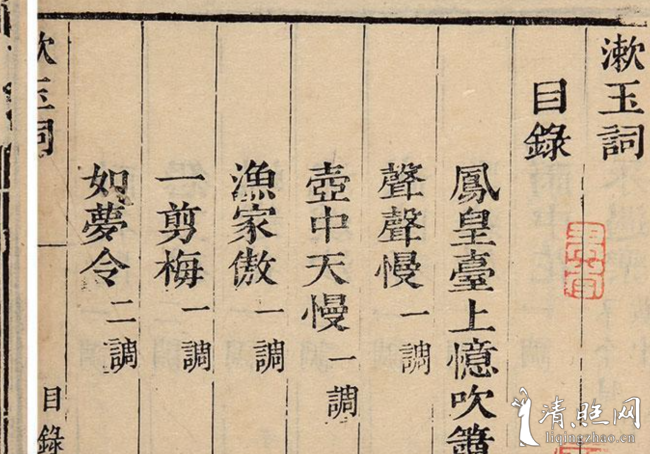 漱玉詞
目錄
鳳皇臺上憶吹簫
聲聲慢 一調
壺中天慢 一調
漁家傲 一調
一剪梅 一調
如夢令 二調
玉詞
目錄
清照网
liqingzhao.cn